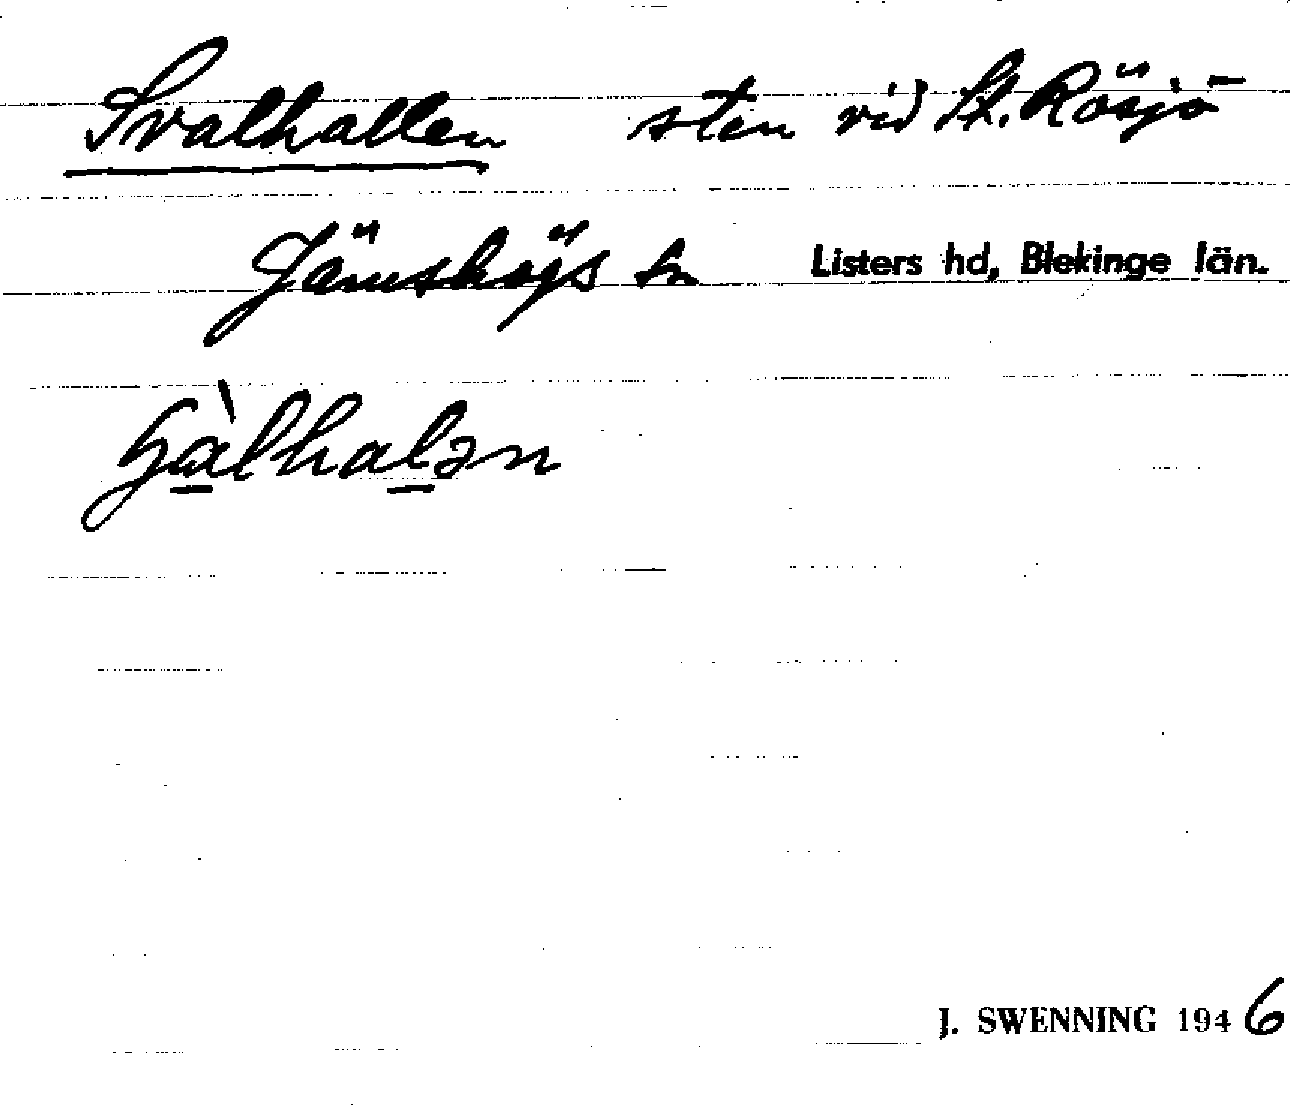 Svalhallen sten vid St. Rösjö
Jämshögs sn Listers hd, Blekinge län.
J. SWENNING 1946